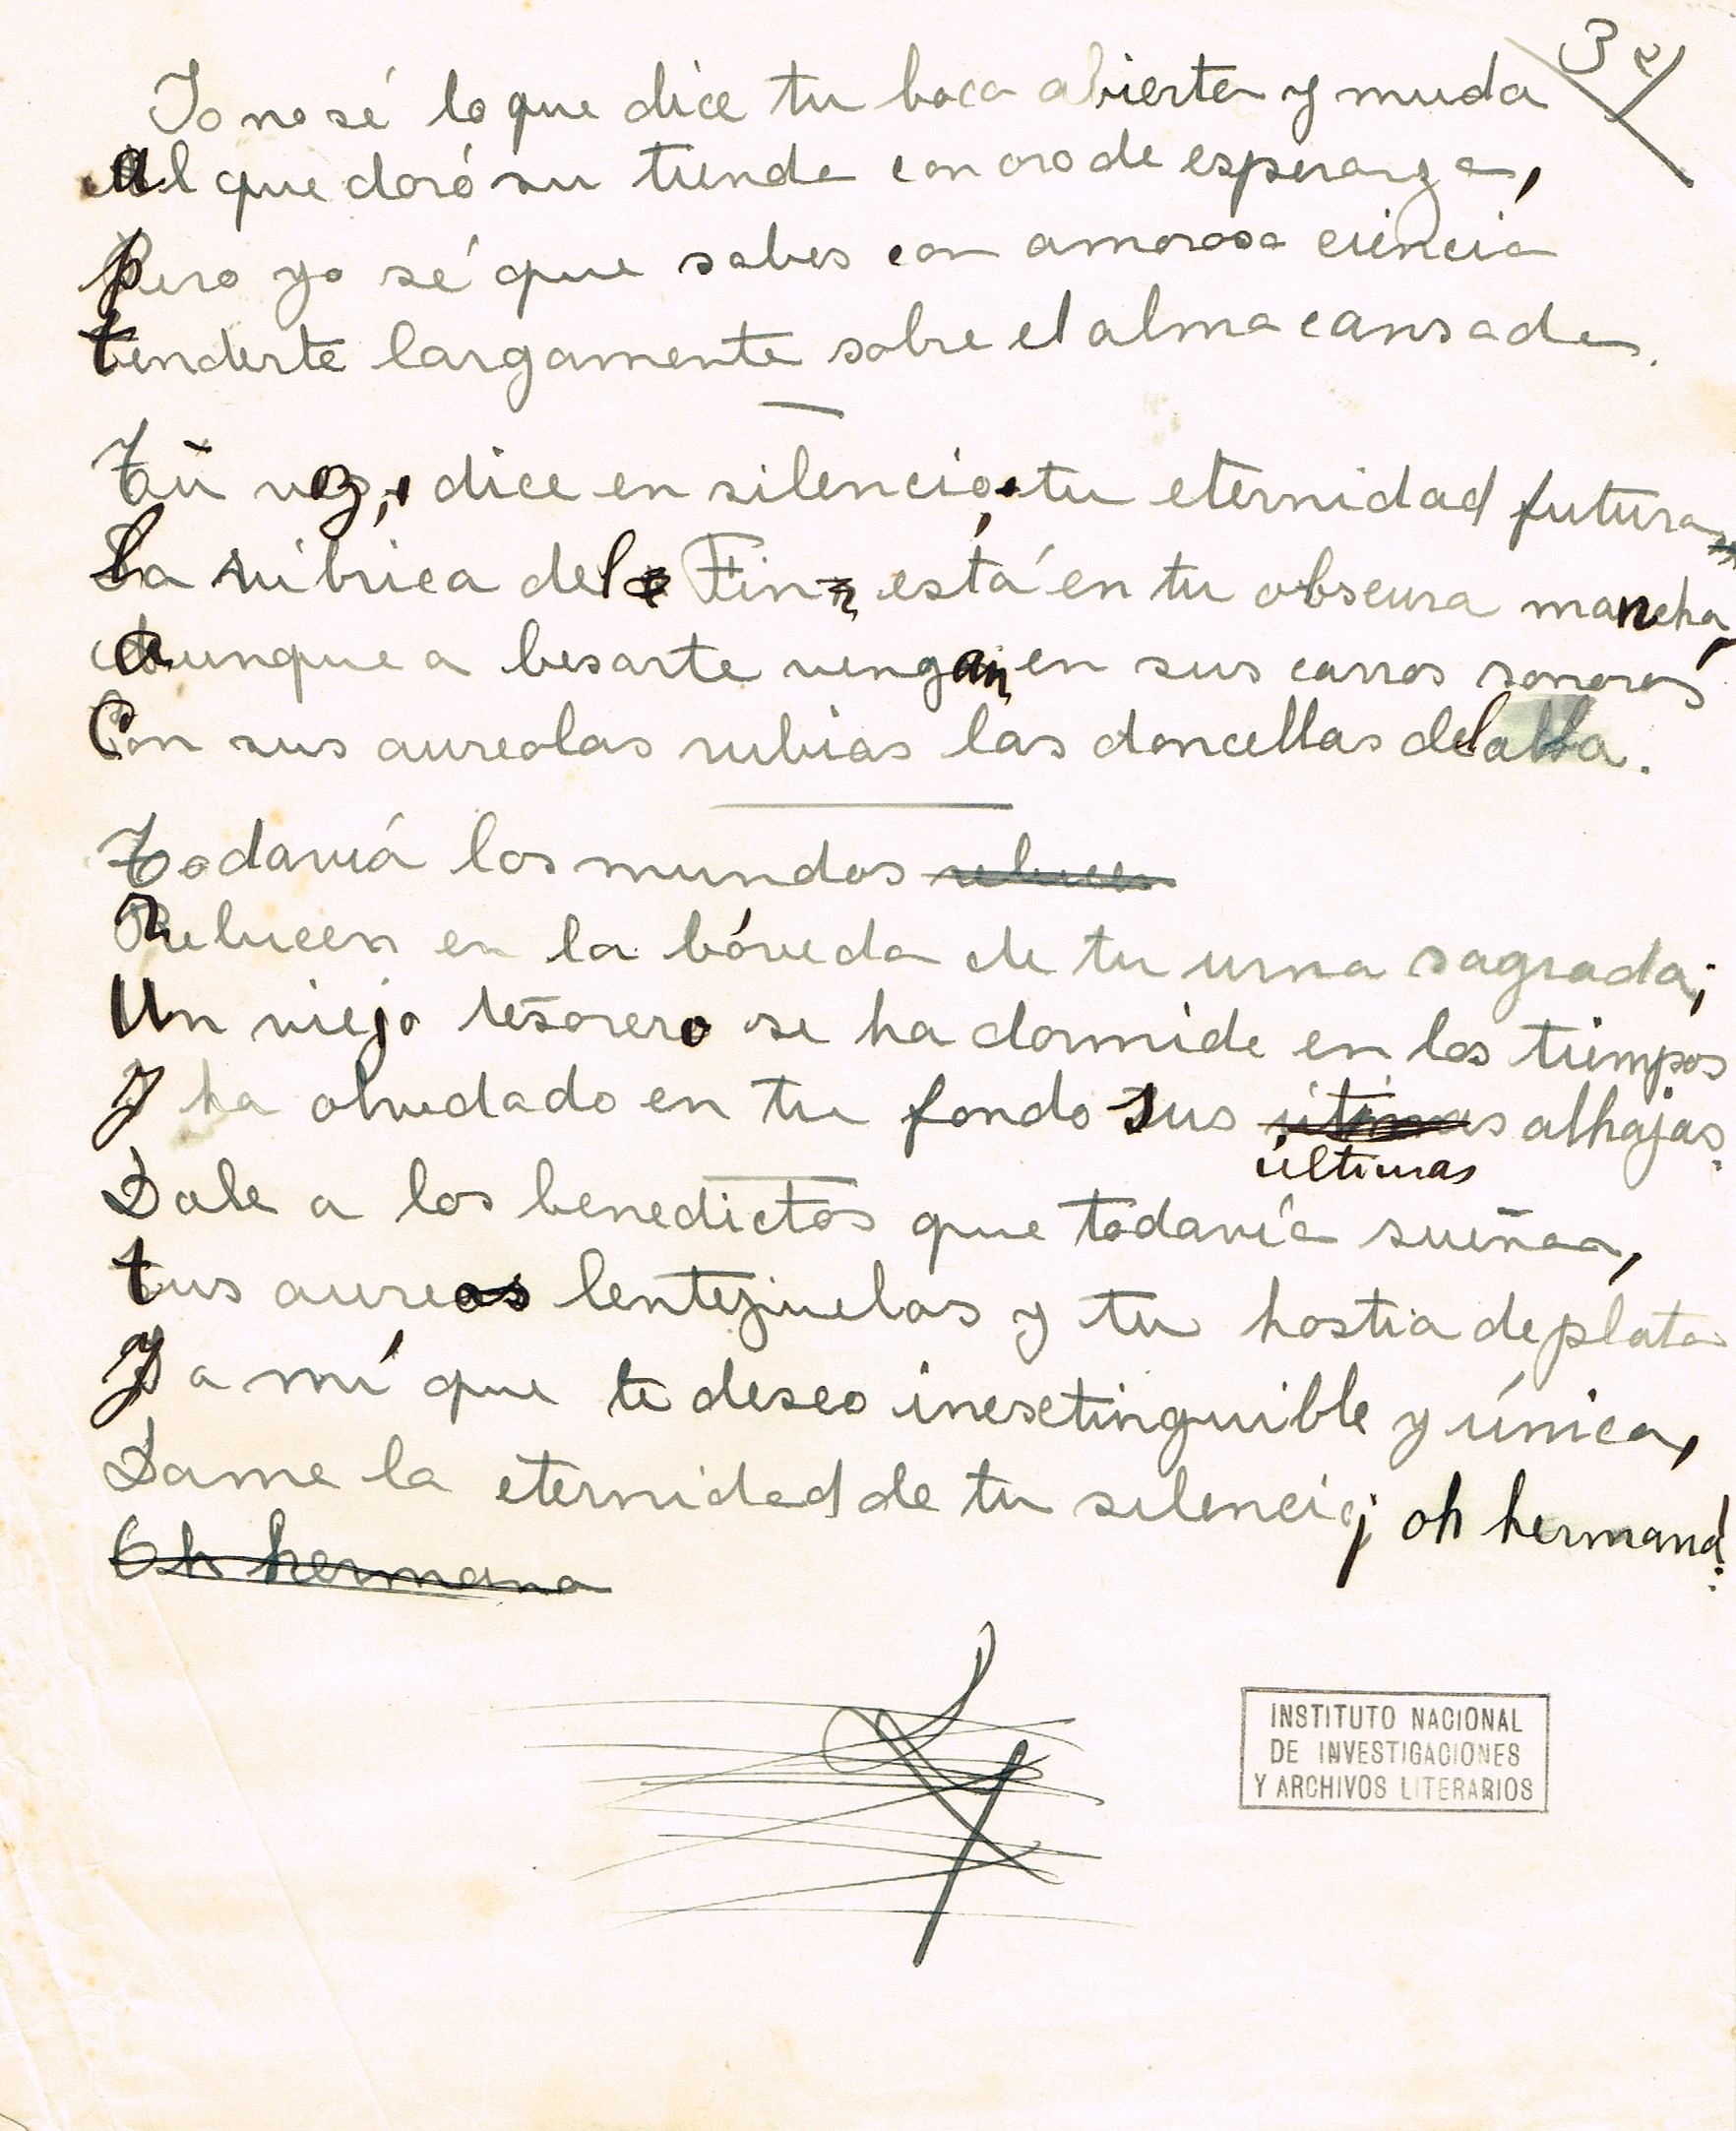 3
Yo no sé lo que dice tu boca abierta y muda
al que doró su tienda con oro de esperanza,
pero yo sé que sabes con amorosa ciencia
tenderte largamente sobre el alma cansada.
Tu voz, dice en silencio, tu eternidad futura
La rúbrica del Fin está en tu obscura mancha,
aunque a besarte vengan en sus carros sonoros
Con sus aureolas rubias las doncellas del alba.
Todavía los mundos relucen
Relucen en la bóveda de tu urna sagrada;
Un viejo tesorero se ha dormido en los tiempos
y ha olvidado en tu fondo sus alhajas.
últimas
Dale a los benedictos que todavía sueñan,
tus aureas lentejuelas y tu hostia de plata
y a mí que te deseo inexctinguible y única,
Dame la eternidad de tu silencio ¡oh hermana!
Oh hermana
INSTITUTO NACIONAL
DE INVESTIGACIONES
Y ARCHIVOS LITERARIOS